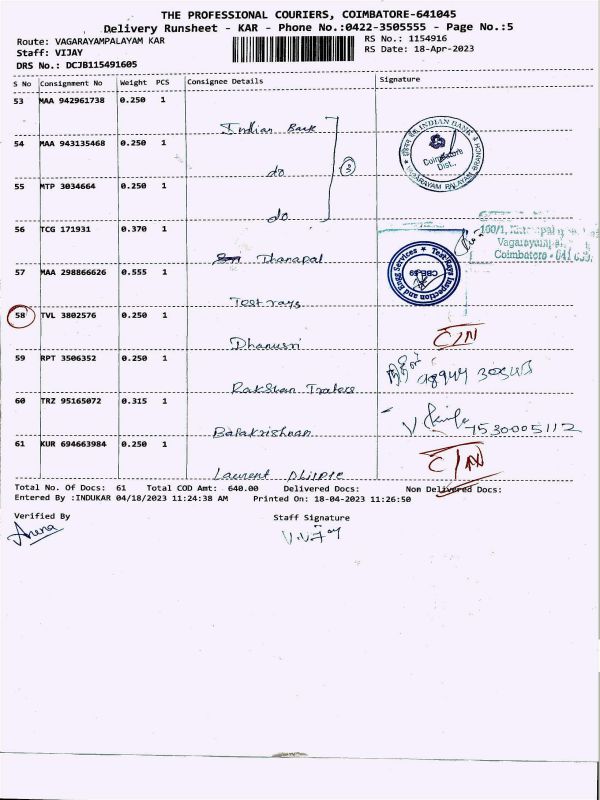 THE PROFESSIONAL COURIERS, COIMBATORE-641045
Delivery Runsheet - KAR - Phone No.:0422-3505555 - Page No.:5
Route: VAGARAYAMPALAYAM KAR
RS No.: 1154916
Staff: VIJAY
RS Date: 18-Apr-2023
DRS No.: DCJB115491605
S No Consignment No Weight PCS Consignee Details Signature
53 MAA 942961738 0.250 1 Indian Bank
54 MAA 943135468 0.250 1 do
55 MTP 3034664 0.250 1 do
3
INDIAN BANK
Coimbatore
Dist..
VAGARAYAM PALAYAM BRANCH
56 TCG 171931 0.370 1 Thanapal
57 MAA 298866626 0.555 1 Test rays
Test-Rays Inspection and Engg Services
CBE-59
Coimbatore - 641
58 TVL 3802576 0.250 1 Dhanusri
59 RPT 3506352 0.250 1 Rakshan Traders
60 TRZ 95165072 0.315 1 Balakrishnan
7530005112
61 KUR 694663984 0.250 1 Laurent
Total No. Of Docs: 61 Total COD Amt: 640.00 Delivered Docs: Non Delivered Docs:
Entered By :INDUKAR 04/18/2023 11:24:38 AM Printed On: 18-04-2023 11:26:50
Verified By Staff Signature